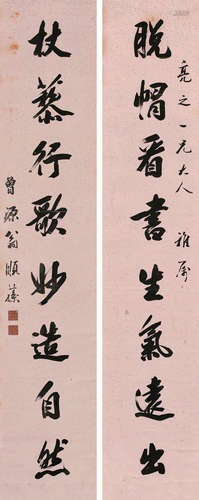 脱帽看書生氣遠出
亮之一兄大人 雅屬
杖藜行歌妙造自然
曾源翁順孫